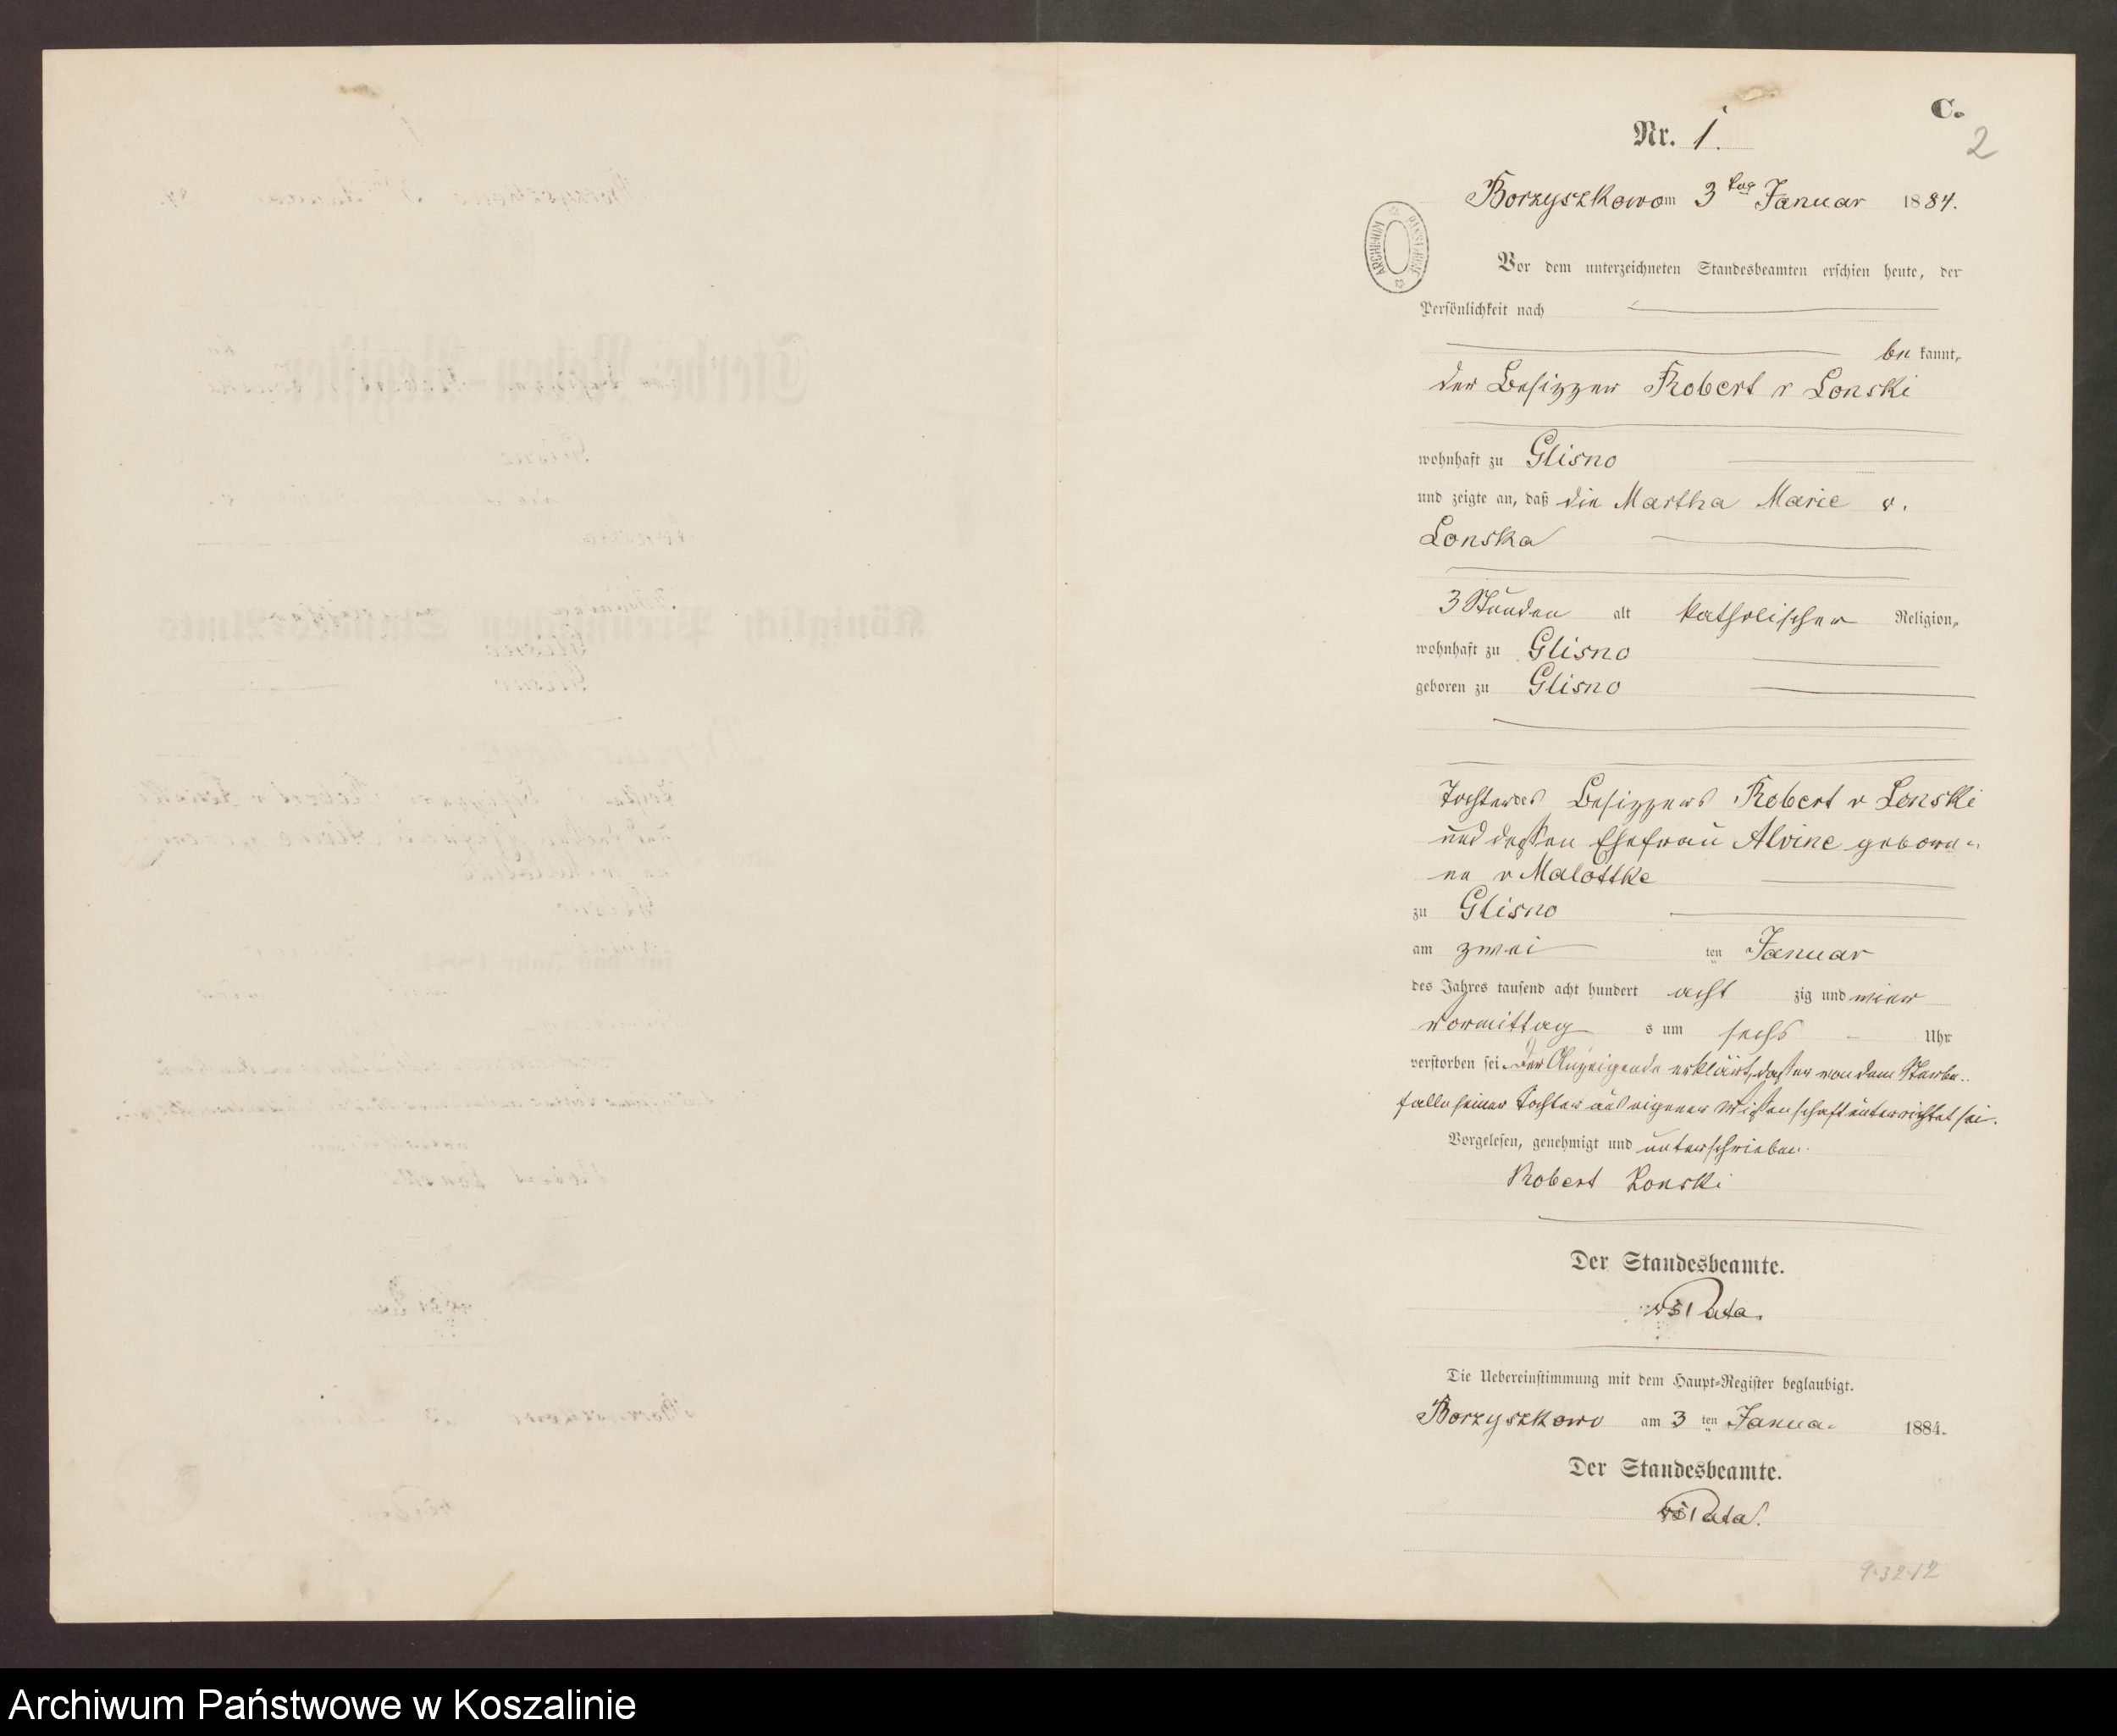 C.
2
Nr. 1.
Borzyszkowo am 3 ten Januar 1884.
ARCHIWUM
Vor dem unterzeichneten Standesbeamten erschien heute, der
Persönlichkeit nach
be kannt,
der Besizzer Robert v Lonski
wohnhaft zu Glisno
und zeigte an, daß die Martha Marie v.
Lonska
3 Stunden alt katholischer Religion,
wohnhaft zu Glisno
geboren zu Glisno
Tochter des Besizzers Robert v Lonski
und dessen Ehefrau Alvine gebore-
ne v Malottke
zu Glisno
am zwei ten Januar
des Jahres tausend acht hundert acht zig und vier
vormittag s um sechs Uhr
verstorben sei. Der Anzeigende erklärt, daß er von dem Sterbe-
falle seiner Tochter aus eigener Wissenschaft unterrichtet sei.
Vorgelesen, genehmigt und unterschrieben.
Robert Lonski
Der Standesbeamte.
Die Uebereinstimmung mit dem Haupt-Register beglaubigt.
Borzyszkowo am 3 ten Janua. 1884.
Der Standesbeamte.
9.32.12
Archiwum Państwowe w Koszalinie